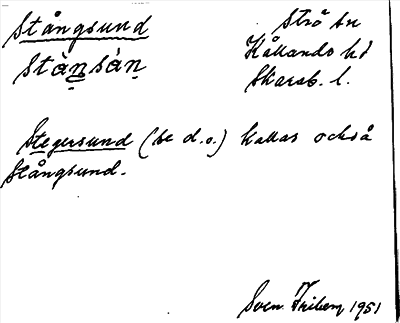 Stångsund
Strö sn
stàn̲sán̲
Kållands hd
Skarab. l.
Stegersund (se d.o.) kallas också
Stångsund.
Sven Friberg 1951